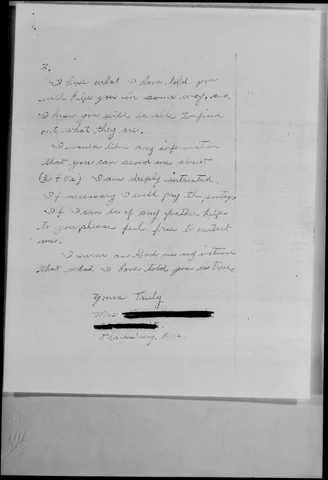 3.
I hope what I have told you
will help you in some way, and
I hope you will be able to find
out what they are.
I would like any information
that you can send me about
(U.F.O's) I am deeply intrested.
If necessary I will pay the postage.
If I can be of any further help
to you please feel free to contact
me.
I swear as God as my witness
that what I have told you is true.
Yours Truly